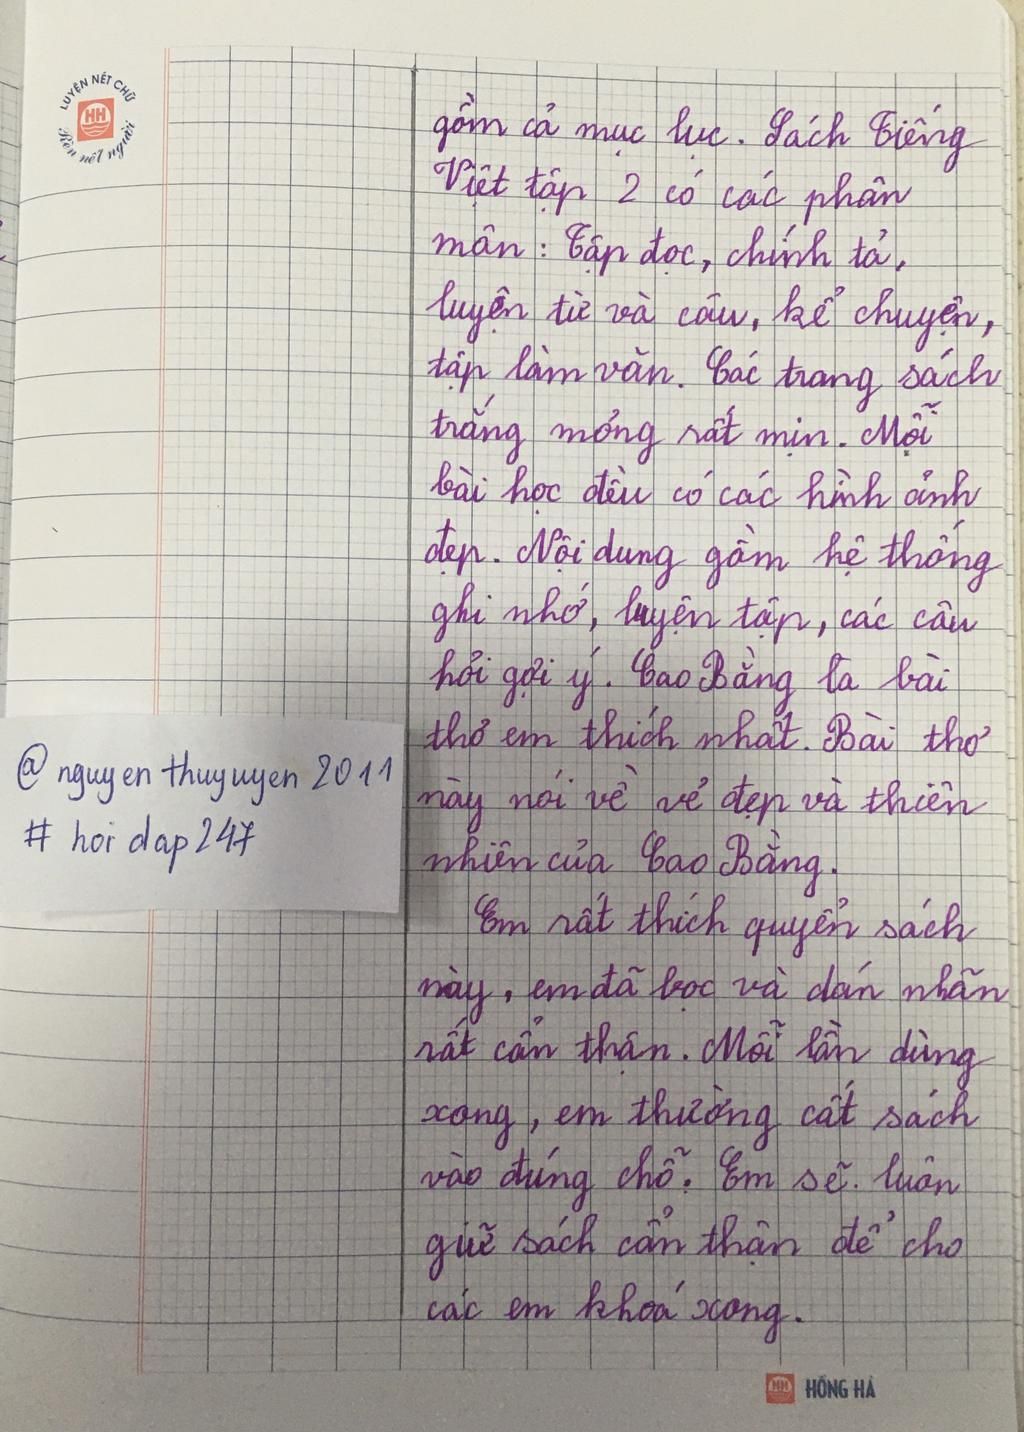 LUYỆN NÉT CHỮ
HH
Rèn nết người
gồm cả mục lục. Sách Tiếng
Việt tập 2 có các phân
môn: Tập đọc, chính tả,
luyện từ và câu, kể chuyện,
tập làm văn. Các trang sách
trắng mỏng rất mịn. Mỗi
bài học đều có các hình ảnh
đẹp. Nội dung gồm hệ thống
ghi nhớ, luyện tập, các câu
hỏi gợi ý. Cao Bằng là bài
thơ em thích nhất. Bài thơ
này nói về vẻ đẹp và thiên
nhiên của Cao Bằng.
Em rất thích quyển sách
này, em đã bọc và dán nhãn
rất cẩn thận. Mỗi lần dùng
xong, em thường cất sách
vào đúng chỗ. Em sẽ luôn
giữ sách cẩn thận để cho
các em khoá xong.
@ nguyen thuyuyen 2011
# hoi dap 247
HH HỒNG HÀ